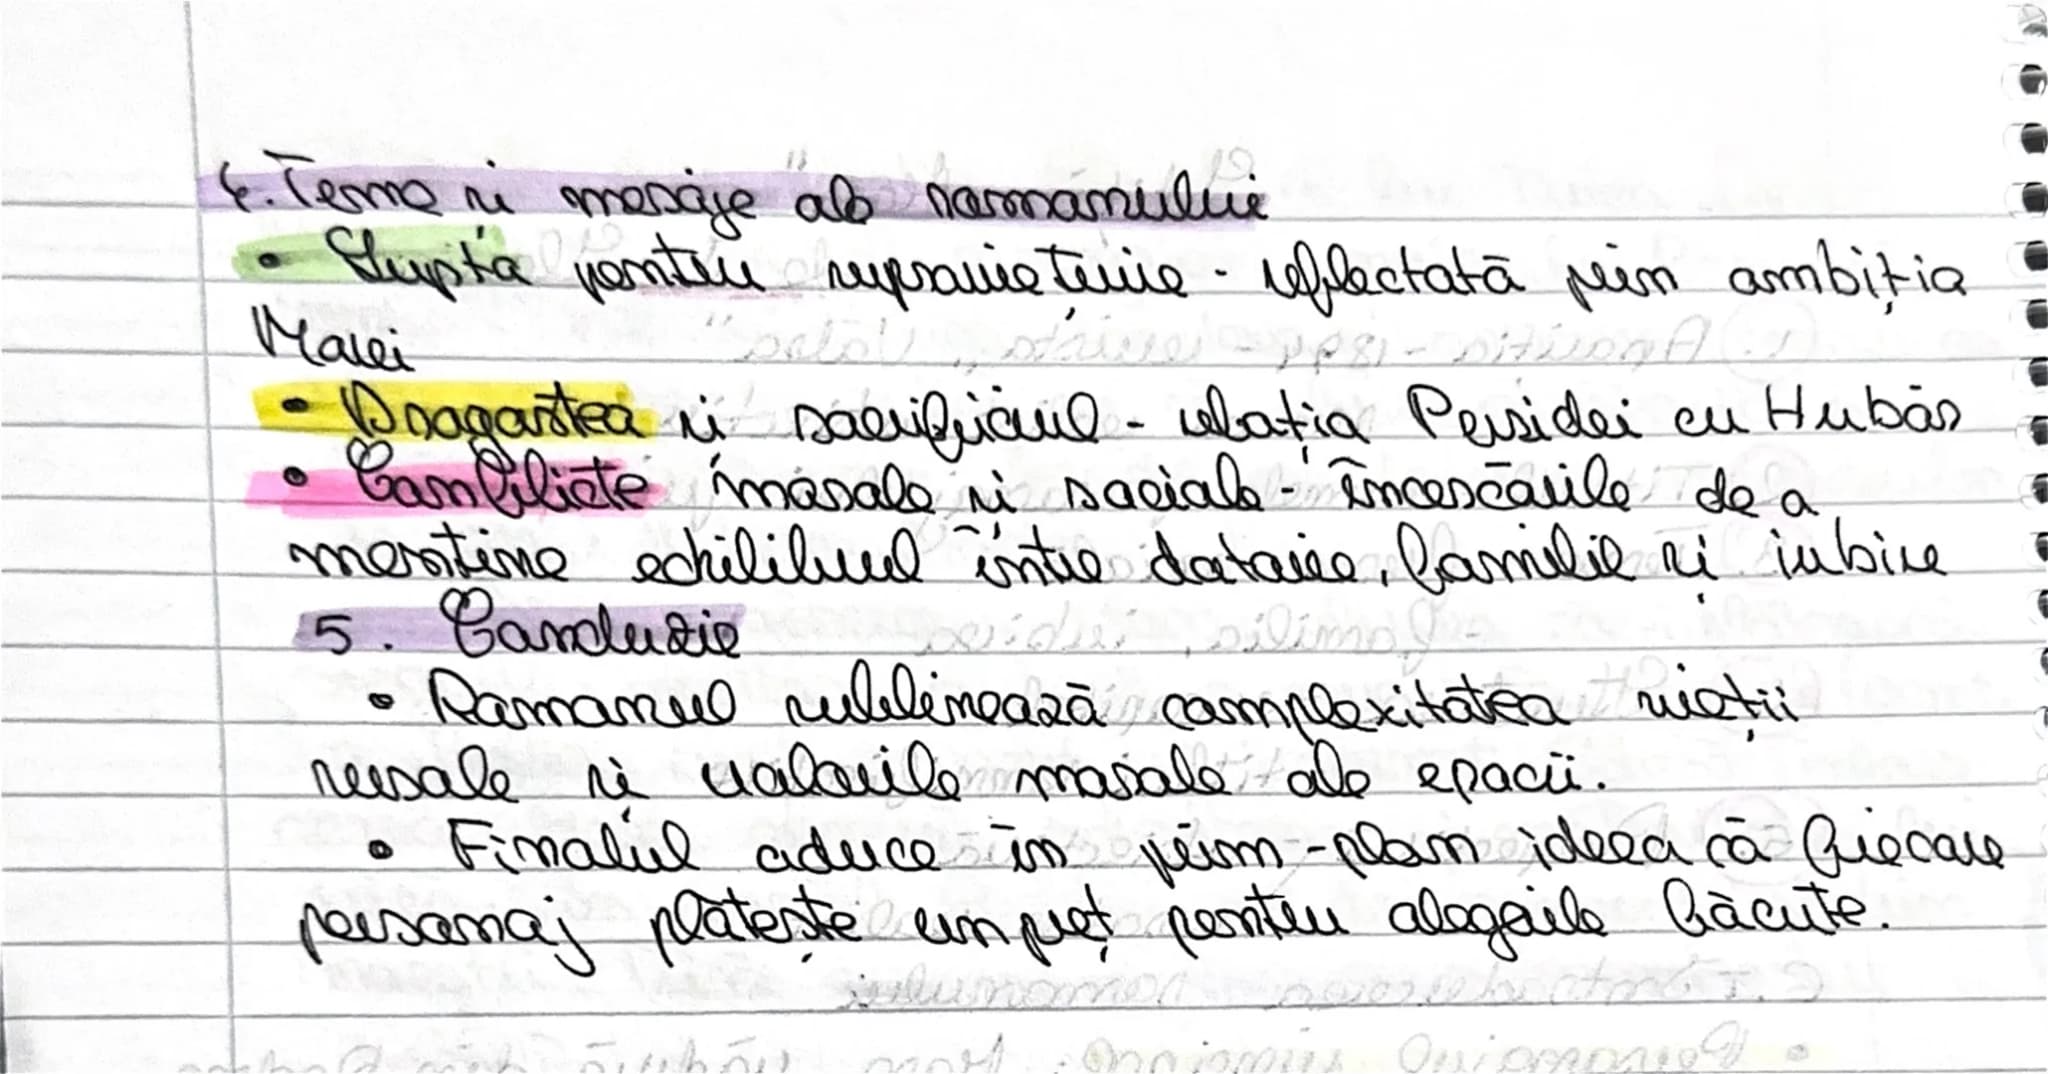 4. Teme și mesaje ale romanului
• Lupta pentru supraviețuire - reflectată prin ambiția
Marei
• Dragostea și sacrificiul - relația Persidei cu Hubăr
• Conflicte morale și sociale - încercările de a
menține echilibrul între datorie, familie și iubire
5. Concluzie
• Romanul subliniează complexitatea vieții
rurale și valorile morale ale epocii.
• Finalul aduce în prim-plan ideea că fiecare
personaj plătește un preț pentru alegerile făcute.